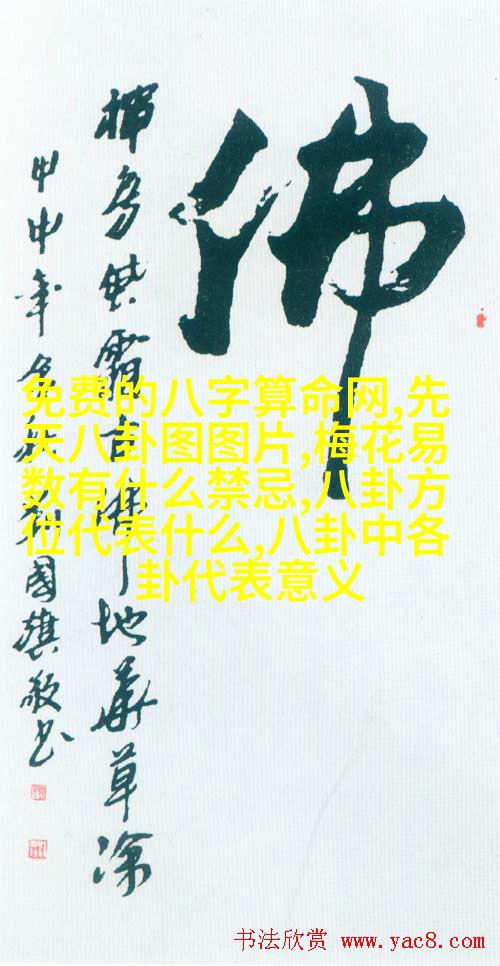 佛
地华草深
甲申年
國旗敬书
免费的八字算命网,先
天八卦图图片,梅花易
数有什么禁忌,八卦方
位代表什么,八卦中各
卦代表意义
书法欣赏 www.yac8.com